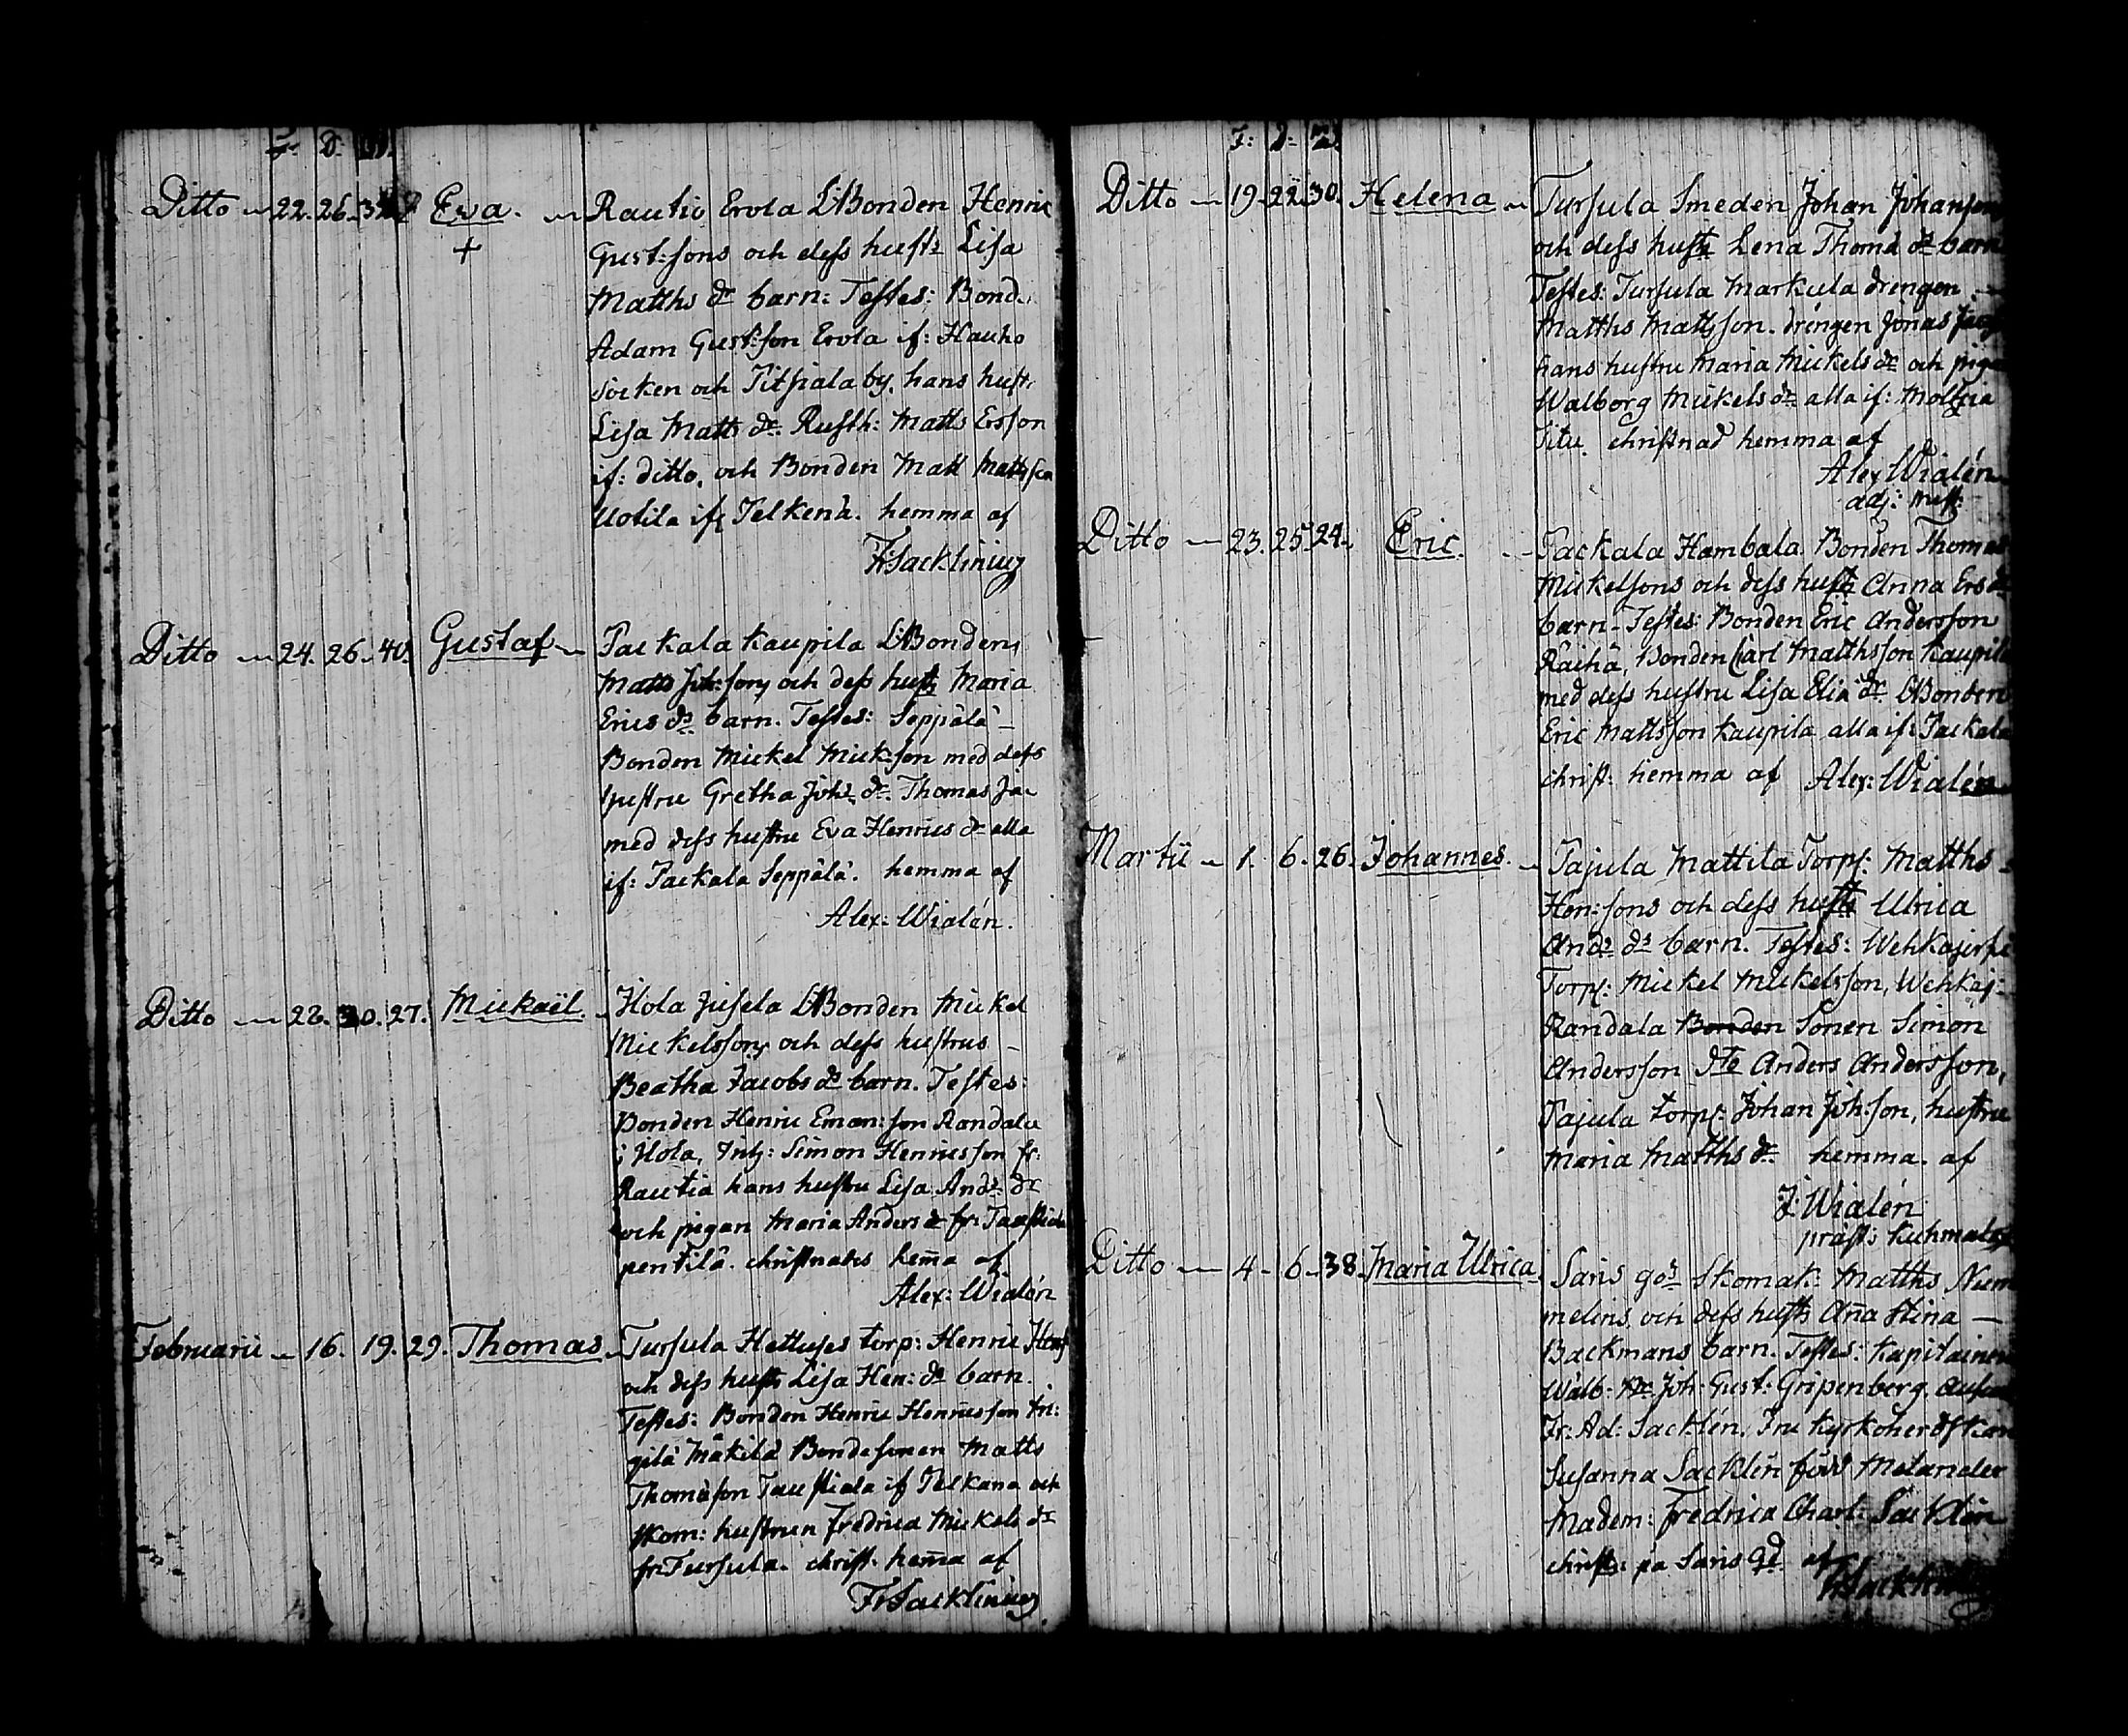 F: D: M:
Ditto — 22. 26. Eva. — Rautio Erola L:Bonden Henric
+ Gust:sons och dess hust: Lisa
Matths dr barn: Testes: Bond.
Adam Gust:son Erola if: Hauho
Socken och Titsiala by, hans hust:
Lisa Matts dr. Rusth: Matts Ersson
if: ditto, och Bonden Matt Mattsson
Uotila if: Pelkenä. hemma af
Fr Sacklinius
Ditto — 24. 26. 40. Gustaf — Packala Kaupila L:Bonden
Matts Joh:sons och dess hust: Maria
Erics dr barn. Testes: Seppälä —
Bonden Mickel Mick:son med dess
hustru Gretha Joh: dr. Thomas Jac
med dess hustru Eva Henrics dr alla
if: Packala Seppälä. hemma af
Alex: Wialén.
Ditto — 28. 30. 27. Mickaël. — Ilola Jusela L:Bonden Mickel
Mickelssons och dess hustrus —
Beatha Jacobs dr barn. Testes:
Bonden Henric Eman:son Randala
i Ilola, Inh: Simon Henricsson fr:
Rautia hans hustru Lisa And: dr
och pigan Maria Anders dr fr:
pentilä. christnades hem̄a af
Alex: Wialén
Februarii — 16. 19. 29. Thomas — Tursula torp: Henric
och dess hust: Lisa Hen: dr barn.
Testes: Bonden Henric Henricsson
Mäkilä Bondesonen Matts
Thomæson Taustiala if Pelkäna och
skom: hustrun Fredrica Mickels dr
fr: Tursula. christ. hem̄a af
Fr Sacklinius
F: D: M:
Ditto — 19. 22. 30. Helena — Tursula Smeden Johan Johansons
och dess hust: Lena Thomæ dr barn
Testes: Tursula Markula drengen —
Matths Mattsson. drengen Jonas
hans hustru Maria Mickels dr och pigan
Walborg Mickels dr alla if:
christnad hemma af
Alex Wialén
adj: Mst:
Ditto — 23. 25. 24. Eric. — Packala Hambala. Bonden Thomas
Mickelsons och dess hust: Anna Ers dr
barn. Testes: Bonden Eric Andersson
Räihä, Bonden Carl Matthsson Kaupila
med dess hustru Lisa Eliæ dr. L:Bonden
Eric Mattsson Kaupila alla if: Packala
christ: hemma af Alex: Wialén
Martii — 1. 6. 26. Johannes. — Pajula Mattila Torp: Matths
Hen:sons och dess hust: Ulrica
And: dr barn. Testes: Wehkajerfvi
Torp: Mickel Mickelsson, Wehkaj:
Randala Bonden Sonen Simon
Andersson dto Anders Andersson,
Pajula torp: Johan Joh:son, hustru
Maria Matths dr hemma. af
J: Wialén
präst i Kuhmalax
Ditto — 4. 6. 38. Maria Ulrica. Saris gos Skomak: Matths Num
melins och dess hust: An̄a Stina —
Backmans barn. Testes: Kapitainen
Wälb: Hr: Joh: Gust: Gripenberg.
Fr: Ad: Sacklén. Fru Kyrkoherdskan
Susanna Sacklén född Melander
Madem: Fredrica Charl: Sacklén
christ: på Saris Gd. af
Fr Sacklinius